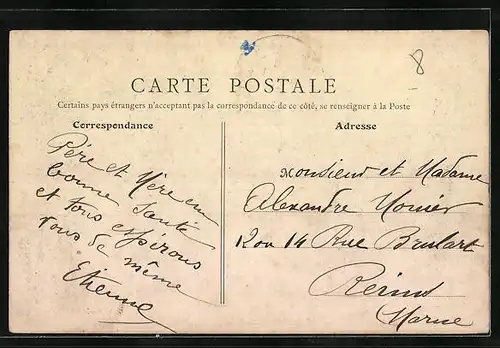 8
CARTE POSTALE
Certains pays étrangers n'acceptant pas la correspondance de ce côté, se renseigner à la Poste
Correspondance
Adresse
Père et Mère en
bonne santé
et tous espérons
vous de même
Etienne
Monsieur et Madame
Alexandre
12 ou 14 Rue Brulart
Reims
Marne